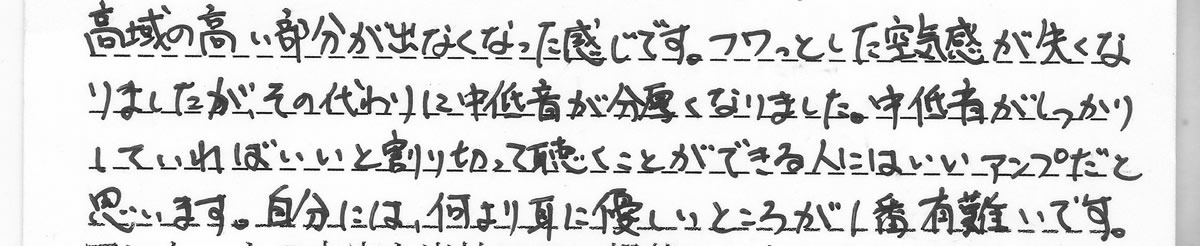 高域の高い部分が出なくなった感じです。フワっとした空気感が失くな
りましたが、その代わりに中低音が分厚くなりました。中低音がしっかり
していればいいと割り切って聴くことができる人にはいいアンプだと
思います。自分には、何より耳に優しいところが1番有難いです。